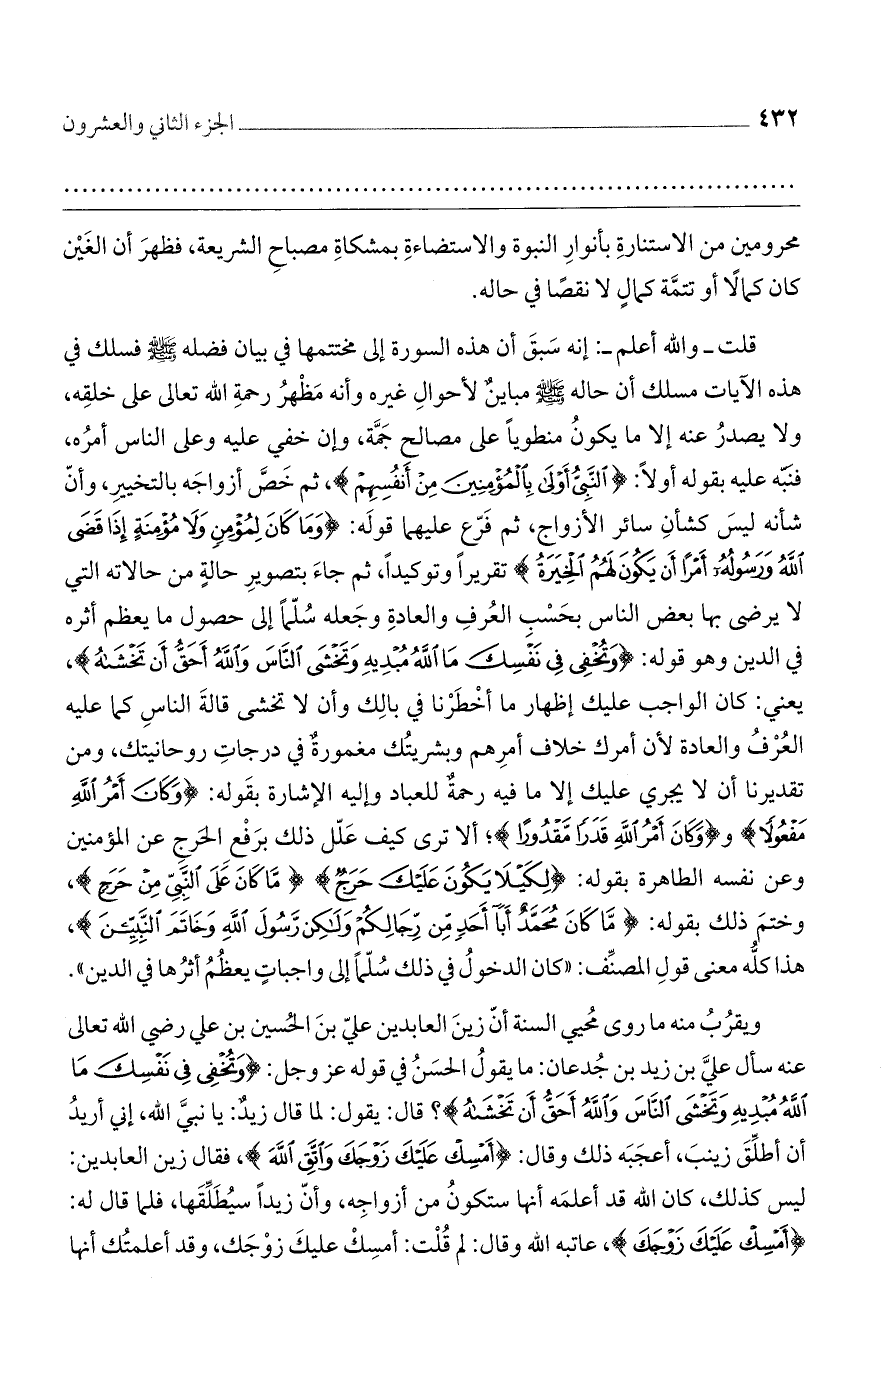 ٤٣٢ الجزء الثاني والعشرون
محرومين من الاستنارةِ بأنوارِ النبوة والاستضاءةِ بمشكاةِ مصباحِ الشريعة، فظهرَ أن الغَيْن
كان كمالًا أو تتمَّة كمالٍ لا نقصًا في حاله.
قلت ـ والله أعلم ـ: إنه سَبقَ أن هذه السورة إلى مختتمها في بيان فضله ﷺ فسلك في
هذه الآيات مسلك أن حاله ﷺ مباينٌ لأحوالِ غيره وأنه مَظْهرُ رحمةِ الله تعالى على خلقِه،
ولا يصدرُ عنه إلا ما يكونُ منطوياً على مصالح جَمَّة، وإن خفي عليه وعلى الناس أمرُه،
فنبّه عليه بقوله أولاً: ﴿ٱلنَّبِيُّ أَوْلَىٰ بِٱلْمُؤْمِنِينَ مِنْ أَنفُسِهِمْ﴾، ثم خَصَّ أزواجَه بالتخييرِ، وأنّ
شأنه ليسَ كشأنِ سائر الأزواج، ثم فَرّع عليهما قولَه: ﴿وَمَا كَانَ لِمُؤْمِنٍ وَلَا مُؤْمِنَةٍ إِذَا قَضَى
ٱللَّهُ وَرَسُولُهُۥٓ أَمْرًا أَن يَكُونَ لَهُمُ ٱلْخِيَرَةُ﴾ تقريراً وتوكيداً، ثم جاءَ بتصويرِ حالةٍ من حالاته التي
لا يرضى بها بعض الناس بحَسْبِ العُرفِ والعادةِ وجَعله سُلّماً إلى حصول ما يعظم أثره
في الدين وهو قوله: ﴿وَتُخْفِى فِى نَفْسِكَ مَا ٱللَّهُ مُبْدِيهِ وَتَخْشَى ٱلنَّاسَ وَٱللَّهُ أَحَقُّ أَن تَخْشَىٰهُ﴾،
يعني: كان الواجب عليك إظهار ما أخْطَرْنا في بالِك وأن لا تخشى قالةَ الناسِ كما عليه
العُرْفُ والعادة لأن أمرك خلاف أمرِهم وبشريتُك مغمورةٌ في درجاتِ روحانيتك، ومن
تقديرنا أن لا يجري عليك إلا ما فيه رحمةٌ للعباد وإليه الإشارة بقَوله: ﴿وَكَانَ أَمْرُ ٱللَّهِ
مَفْعُولًا﴾ و﴿وَكَانَ أَمْرُ ٱللَّهِ قَدَرًا مَّقْدُورًا﴾؛ ألا ترى كيف عَلّل ذلك برَفْع الحَرجِ عن المؤمنين
وعن نفسه الطاهرة بقوله: ﴿لِكَيْلَا يَكُونَ عَلَيْكَ حَرَجٌ﴾ ﴿مَّا كَانَ عَلَى ٱلنَّبِيِّ مِنْ حَرَجٍ﴾،
وختمَ ذلك بقوله: ﴿مَّا كَانَ مُحَمَّدٌ أَبَآ أَحَدٍ مِّن رِّجَالِكُمْ وَلَٰكِن رَّسُولَ ٱللَّهِ وَخَاتَمَ ٱلنَّبِيِّـۧنَ﴾،
هذا كلُّه معنى قولِ المصنِّف: «كان الدخولُ في ذلك سُلّماً إلى واجباتٍ يعظُمُ أثرُها في الدين».
ويقرُبُ منه ما روى مُحيي السنة أنّ زينَ العابدين عليّ بنَ الحُسين بن علي رضي الله تعالى
عنه سأل عليَّ بن زيد بن جُدعان: ما يقولُ الحسَنُ في قوله عز وجل: ﴿وَتُخْفِى فِى نَفْسِكَ مَا
ٱللَّهُ مُبْدِيهِ وَتَخْشَى ٱلنَّاسَ وَٱللَّهُ أَحَقُّ أَن تَخْشَىٰهُ﴾؟ قال: يقول: لما قال زيدٌ: يا نبيَّ الله، إني أريدُ
أن أطلِّقَ زينبَ، أعجَبَه ذلك وقال: ﴿أَمْسِكْ عَلَيْكَ زَوْجَكَ وَٱتَّقِ ٱللَّهَ﴾، فقال زين العابدين:
ليس كذلك، كان الله قد أعلمَه أنها ستكونُ من أزواجِه، وأنّ زيداً سيُطَلِّقَها، فلما قال له:
﴿أَمْسِكْ عَلَيْكَ زَوْجَكَ﴾، عاتبه الله وقال: لم قُلْت: أمسِكْ عليكَ زوْجَك، وقد أعلمتُك أنها